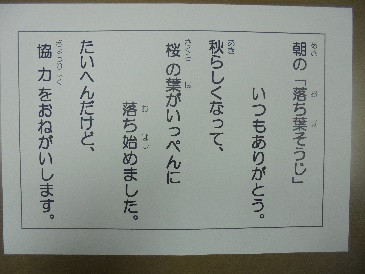 朝の「落ち葉そうじ」
いつもありがとう。
秋らしくなって、
桜の葉がいっぺんに
落ち始めました。
たいへんだけど、
協力をおねがいします。